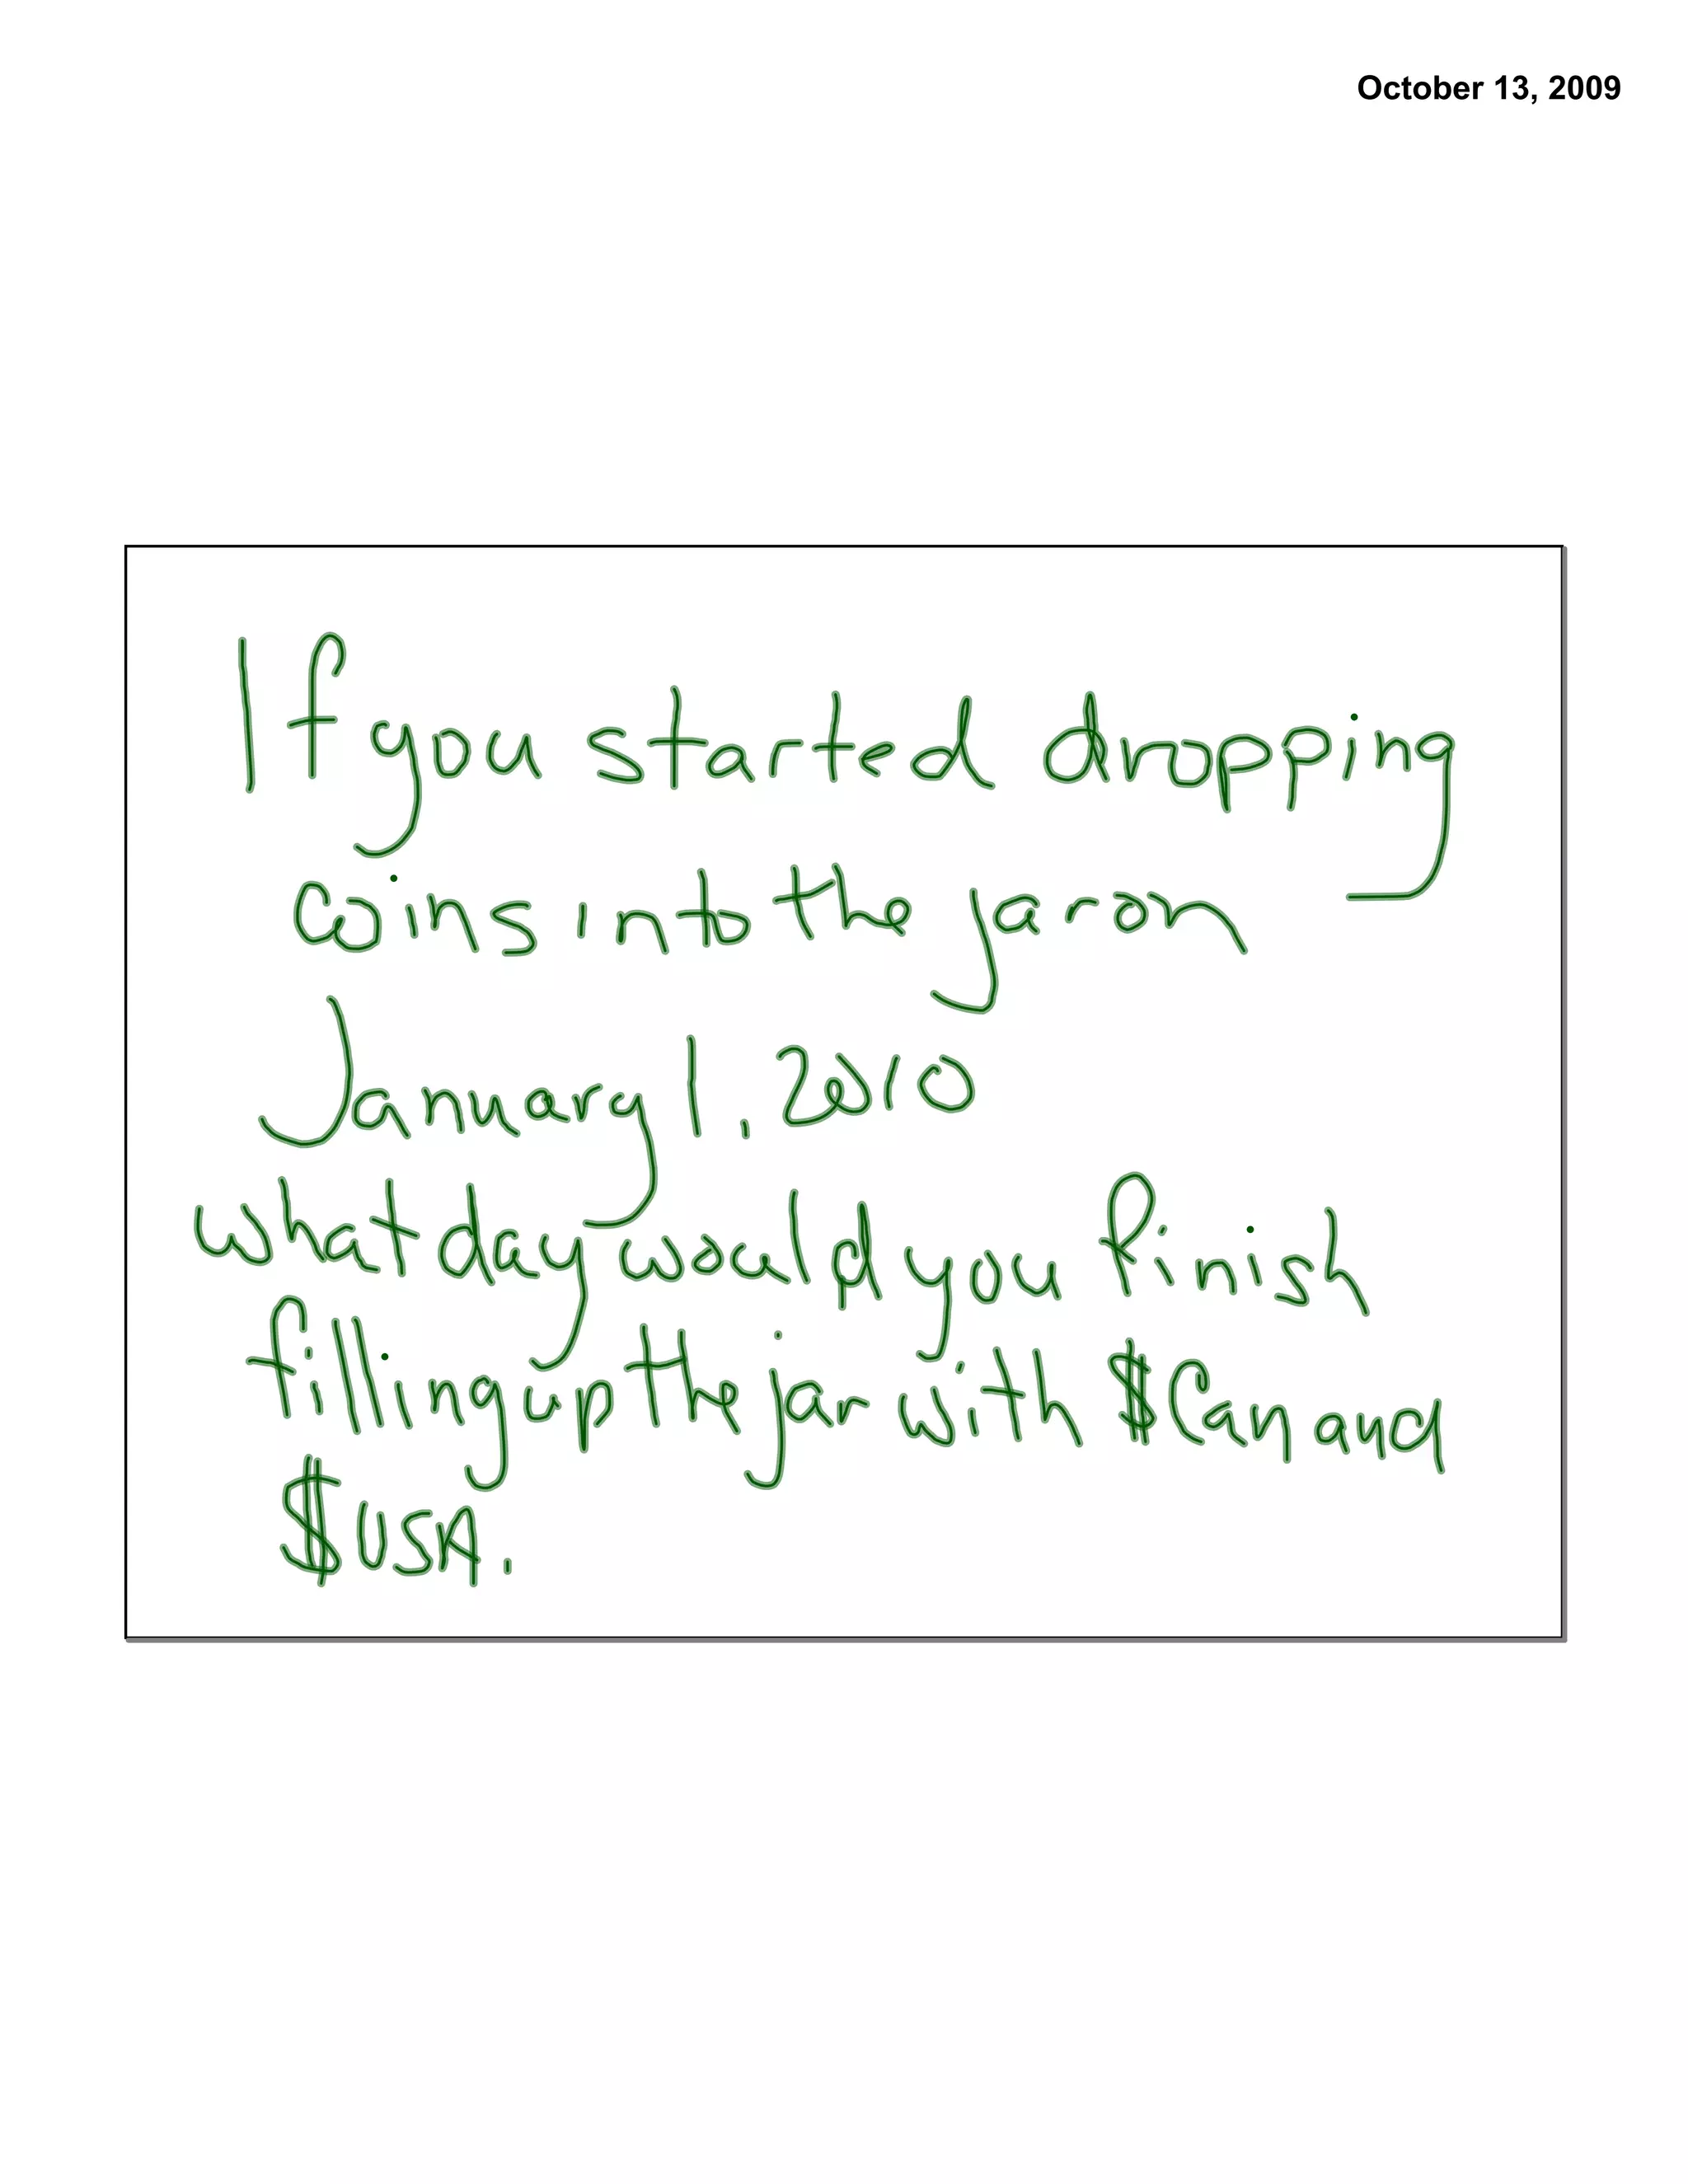 October 13, 2009
If you started dropping
coins into the jar on
January 1, 2010
what day would you finish
filling up the jar with $Can and
$USA.